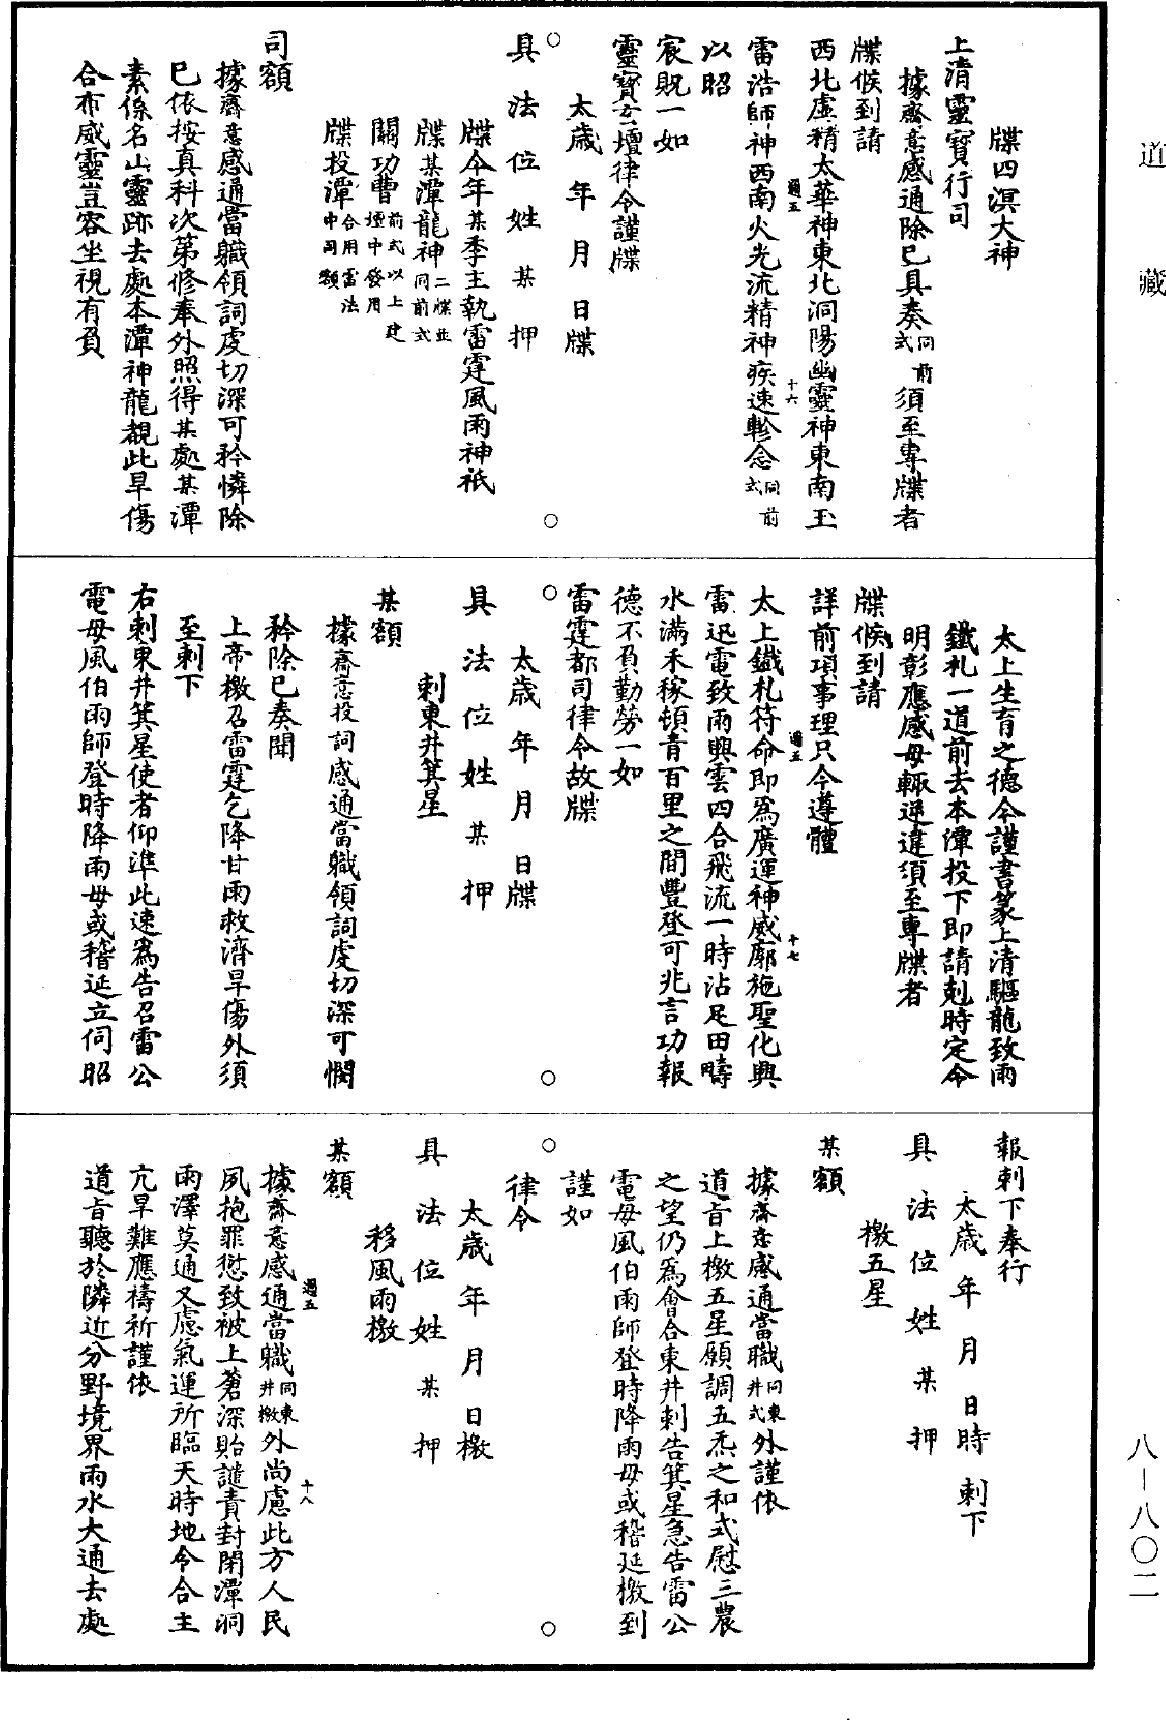 道藏
牒四溟大神
上清靈寶行司
據齋意感通除已具奏同前式須至專牒者
牒候到請
西北虛精太華神東北洞陽幽靈神東南玉
週五 十六
雷浩師神西南火光流精神疾速軫念同前式
以昭
宸貺一如
靈寶玄壇律令謹牒
太歲 年 月 日牒
○具法位姓某押○
牒今年某季主執雷霆風雨神祇
牒某潭龍神二牒並同前式
關功曹前式以上建壇中發用
牒投潭合用雷法中司額
司額
據齋意感通當職領詞虔切深可矜憐除
已依按真科次第修奉外照得某處某潭
素係名山靈跡去處本潭神龍覩此旱傷
合布威靈豈容坐視有負
太上生育之德今謹書篆上清驅龍致雨
鐵札一道前去本潭投下即請剋時定令
明彰應感毋輒逆違須至專牒者
牒候到請
詳前項事理只今遵體
週五 十七
太上鐵札符命即為廣運神威廓施聖化興
雷迅電致雨興雲四合飛流一時沾足田疇
水滿禾稼頓青百里之間豐登可兆言功報
德不負勤勞一如
雷霆都司律令故牒
○ ○
太歲 年 月 日牒
具法位姓某押
刺東井箕星
某額
據齋意投詞感通當職領詞虔切深可憫
矜除已奏聞
上帝檄召雷霆乞降甘雨救濟旱傷外須
至刺下
右刺東井箕星使者仰準此速為告召雷公
電母風伯雨師登時降雨毋或稽延立伺昭
報刺下奉行
太歲 年 月 日時 刺下
具法位姓某押
檄五星
某額
據齋意感通當職同東井式外謹依
道旨上檄五星願調五炁之和式慰三農
之望仍為會合東井刺告箕星急告雷公
電母風伯雨師登時降雨毋或稽延檄到
謹如
律令
○ ○
太歲 年 月 日檄
具法位姓某押
移風雨檄
某額
週五 十八
據齋意感通當職同東井檄外尚慮此方人民
夙抱罪愆致被上蒼深貽譴責封閉潭洞
雨澤莫通又慮氣運所臨天時地令合主
亢旱難應禱祈謹依
道旨聽於隣近分野境界雨水大通去處
八—八〇二